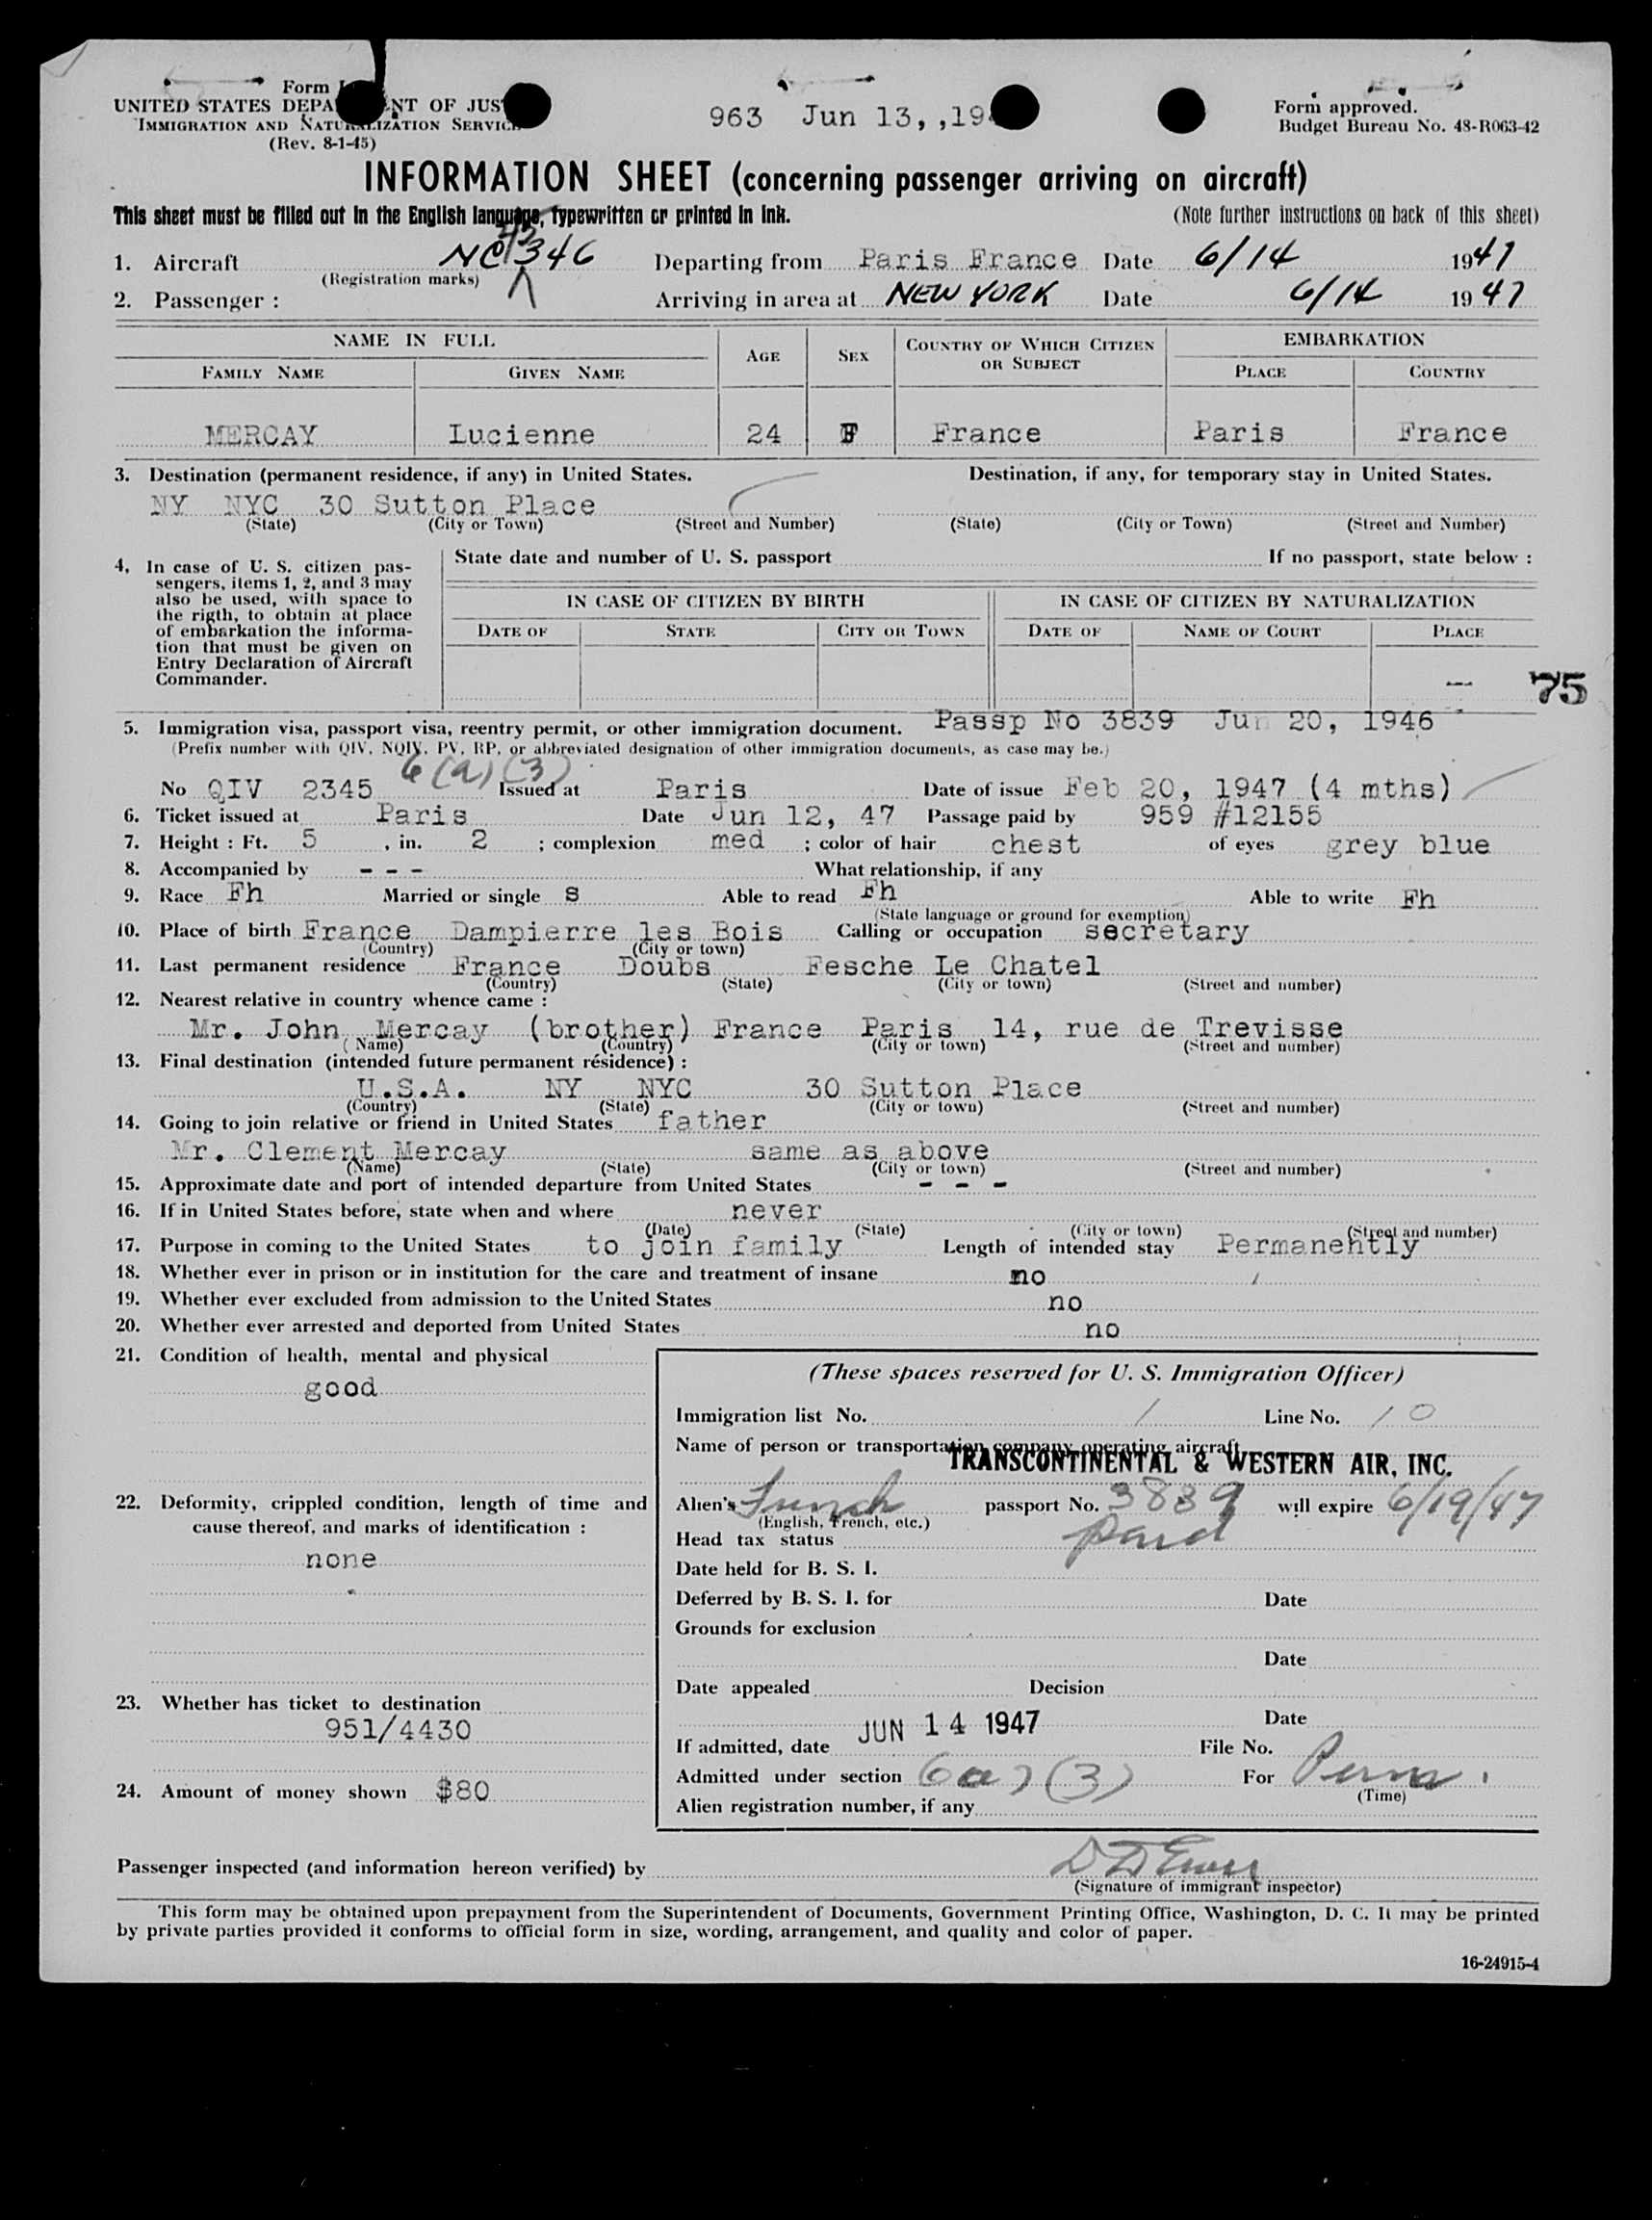 Form
UNITED STATES DEPA NT OF JUS
IMMIGRATION AND NATURALIZATION SERVICE
(Rev. 8-1-45)
963 Jun 13, ,19
Form approved.
Budget Bureau No. 48-R063-42
INFORMATION SHEET (concerning passenger arriving on aircraft)
This sheet must be filled out in the English language, typewritten or printed in ink. (Note further instructions on back of this sheet)
45
1. Aircraft NC 346 Departing from Paris France Date 6/14 1947
(Registration marks)
2. Passenger : Arriving in area at NEW YORK Date 6/14 1947
NAME IN FULL AGE SEX COUNTRY OF WHICH CITIZEN OR SUBJECT EMBARKATION
FAMILY NAME GIVEN NAME PLACE COUNTRY
MERCAY Lucienne 24 F France Paris France
3. Destination (permanent residence, if any) in United States. Destination, if any, for temporary stay in United States.
NY NYC 30 Sutton Place
(State) (City or Town) (Street and Number) (State) (City or Town) (Street and Number)
4. In case of U. S. citizen pas-
sengers, items 1, 2, and 3 may
also be used, with space to
the rigth, to obtain at place
of embarkation the informa-
tion that must be given on
Entry Declaration of Aircraft
Commander.
State date and number of U. S. passport If no passport, state below :
IN CASE OF CITIZEN BY BIRTH IN CASE OF CITIZEN BY NATURALIZATION
DATE OF STATE CITY OR TOWN DATE OF NAME OF COURT PLACE
75
5. Immigration visa, passport visa, reentry permit, or other immigration document. Passp No 3839 Jun 20, 1946
(Prefix number with QIV, NQIV, PV, RP, or abbreviated designation of other immigration documents, as case may be.)
6(a)(3)
No QIV 2345 Issued at Paris Date of issue Feb 20, 1947 (4 mths)
6. Ticket issued at Paris Date Jun 12, 47 Passage paid by 959 #12155
7. Height : Ft. 5 , in. 2 ; complexion med ; color of hair chest of eyes grey blue
8. Accompanied by - - - What relationship, if any
9. Race Fh Married or single S Able to read Fh Able to write Fh
(State language or ground for exemption)
10. Place of birth France Dampierre les Bois Calling or occupation secretary
(Country) (City or town)
11. Last permanent residence France Doubs Fesche Le Chatel
(Country) (State) (City or town) (Street and number)
12. Nearest relative in country whence came :
Mr. John Mercay (brother) France Paris 14, rue de Trevisse
(Name) (Country) (City or town) (Street and number)
13. Final destination (intended future permanent résidence) :
U.S.A. NY NYC 30 Sutton Place
(Country) (State) (City or town) (Street and number)
14. Going to join relative or friend in United States father
Mr. Clement Mercay same as above
(Name) (State) (City or town) (Street and number)
15. Approximate date and port of intended departure from United States - - -
16. If in United States before, state when and where never
(Date) (State) (City or town) (Street and number)
17. Purpose in coming to the United States to join family Length of intended stay Permanently
18. Whether ever in prison or in institution for the care and treatment of insane no
19. Whether ever excluded from admission to the United States no
20. Whether ever arrested and deported from United States no
21. Condition of health, mental and physical
good
22. Deformity, crippled condition, length of time and
cause thereof, and marks of identification :
none
23. Whether has ticket to destination
951/4430
24. Amount of money shown $80
(These spaces reserved for U. S. Immigration Officer)
Immigration list No. 1 Line No. 10
Name of person or transportation company operating aircraft
TRANSCONTINENTAL & WESTERN AIR, INC.
Alien's French passport No. 3839 will expire 6/19/47
(English, French, etc.)
Head tax status paid
Date held for B. S. I.
Deferred by B. S. I. for Date
Grounds for exclusion
Date
Date appealed Decision
Date
If admitted, date JUN 14 1947 File No.
Admitted under section 6a)(3) For Perm.
(Time)
Alien registration number, if any
Passenger inspected (and information hereon verified) by
(Signature of immigrant inspector)
This form may be obtained upon prepayment from the Superintendent of Documents, Government Printing Office, Washington, D. C. It may be printed
by private parties provided it conforms to official form in size, wording, arrangement, and quality and color of paper.
16-24915-4